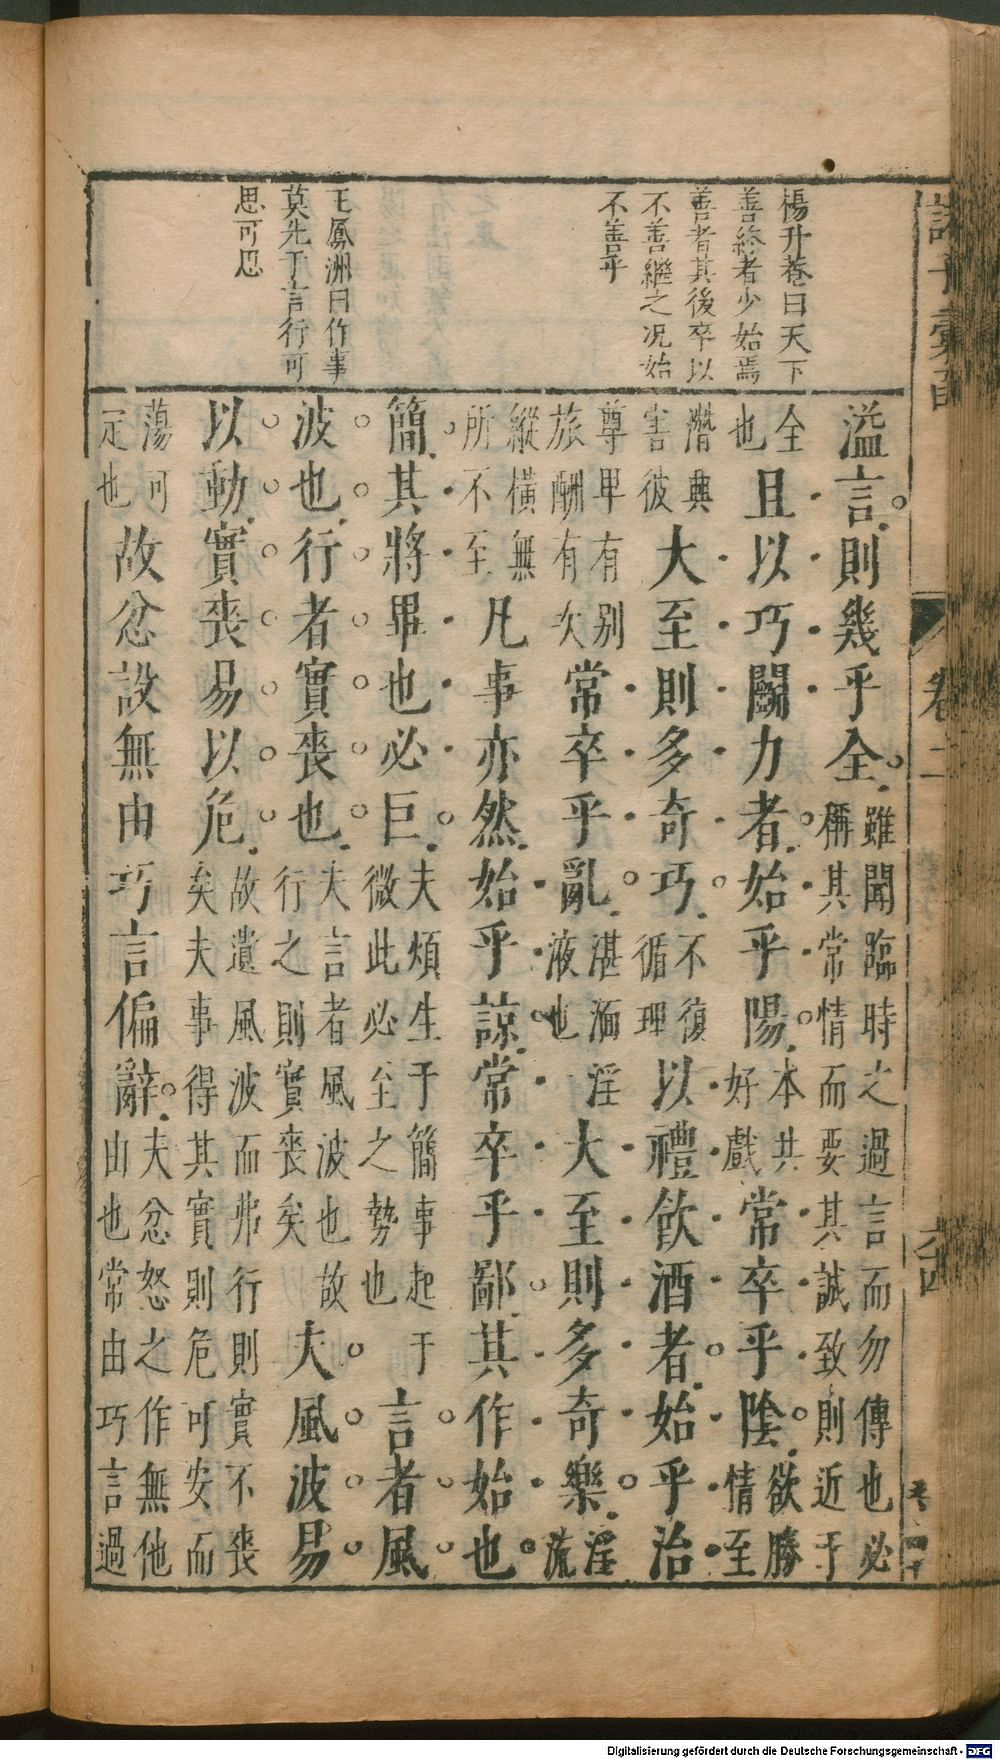 楊升菴曰天下
善終者少始焉
善者其後卒以
不善繼之况始
不善乎
王鳳洲曰作事
莫先于言行可
思可忍
溢言則幾乎全雖聞臨時之過言而勿傳也必稱其常情而要其誠致則近于
全也且以巧鬭力者始乎陽本共好戲常卒乎陰欲勝情至
潛典害彼大至則多奇巧不復循理以禮飲酒者始乎治
尊卑有别旅酬有次常卒乎亂湛湎淫液也大至則多奇樂淫流
縱橫無所不至凡事亦然始乎諒常卒乎鄙其作始也
簡其將畢也必巨夫煩生于簡事起于微此必至之勢也言者風
波也行者實喪也夫言者風波也故行之則實喪矣夫風波易
以動實喪易以危故遺風波而弗行則實不喪矣夫事得其實則危可安而
蕩可定也故忿設無由巧言偏辭夫忿怒之作無他由也常由巧言過
卷二
Digitalisierung gefördert durch die Deutsche Forschungsgemeinschaft - DFG